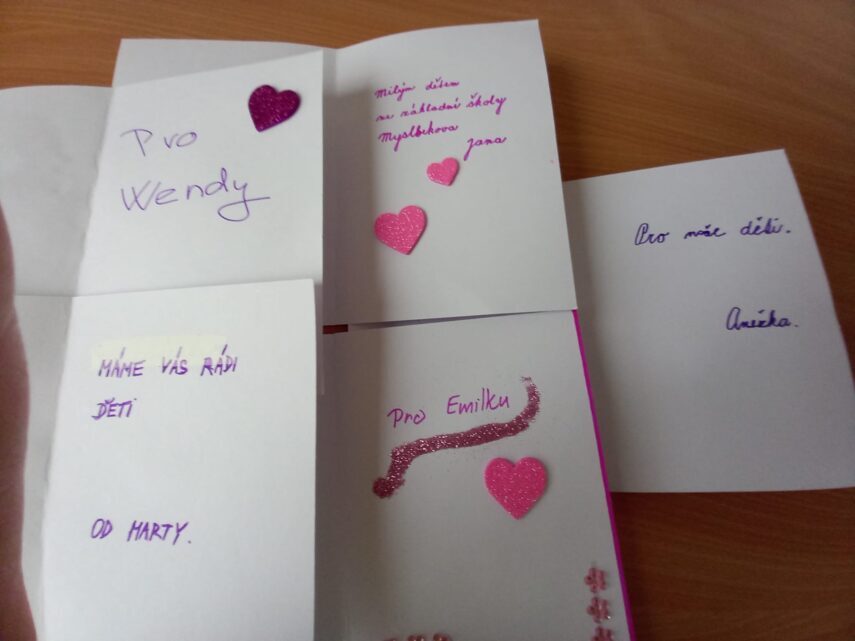 Pro
Wendy
Milým dětem
ze základní školy
Myslbekova
Jana
Pro naše děti.
Anežka.
MÁME VÁS RÁDI
DĚTI
OD MARTY.
Pro Emilku